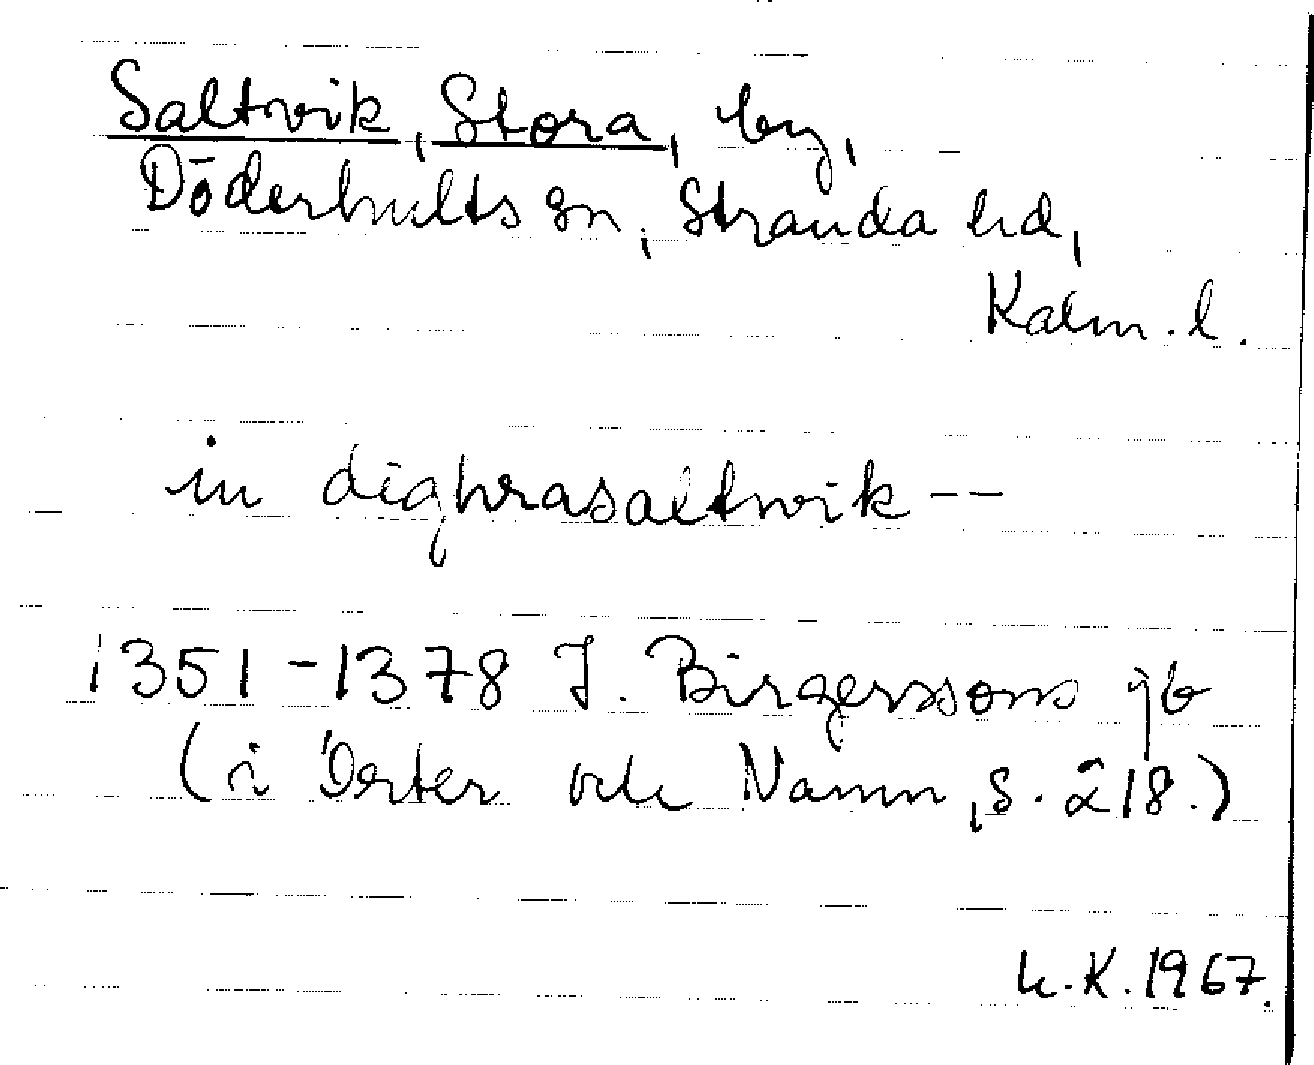 Saltvik, Stora, by,
Döderhults sn, Stranda hd,
Kalm. l.
in dighrasaltwik --
1351-1378 J. Birgerssons jb
(i Orter och Namn, s. 218.)
K. 1967.